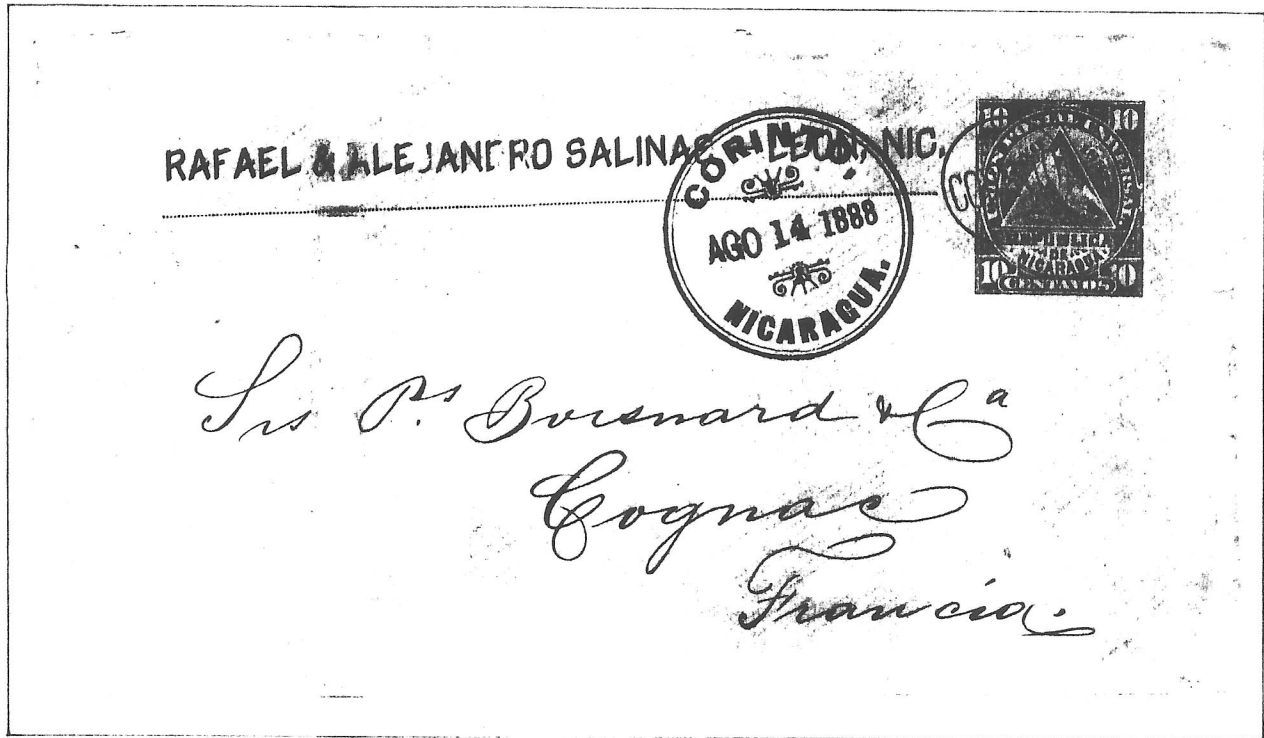 RAFAEL & ALEJANDRO SALINAS LEON, NIC.
CORINTO.
AGO 14 1888
NICARAGUA.
10 10
UNION POSTAL UNIVERSAL
REPUBLICA
DE
NICARAGUA
10 CENTAVOS 10
CO
Srs P.s Boisnard & Ca
Cognac
Francia.